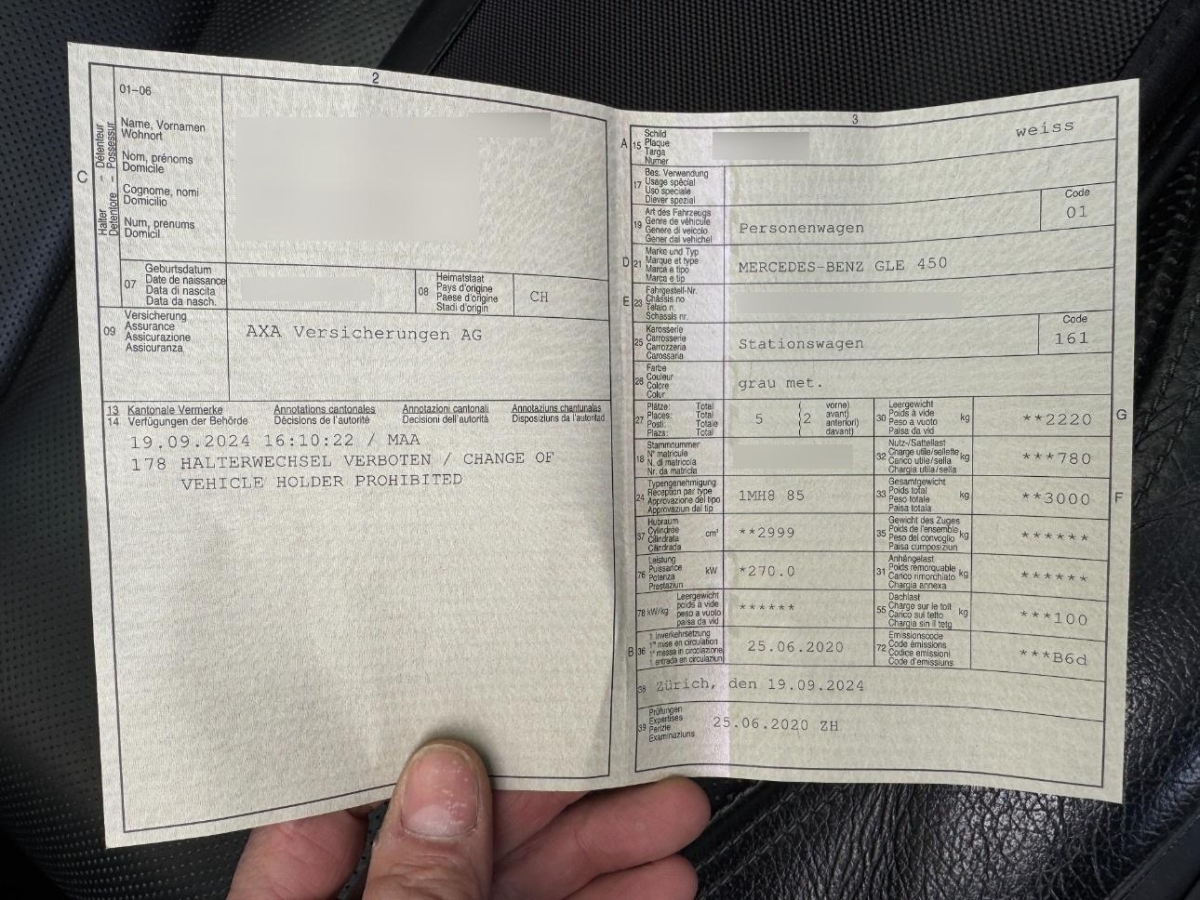 2
01-06
C
Halter - Détenteur
Detentore - Possessur
Name, Vornamen
Wohnort
Nom, prénoms
Domicile
Cognome, nomi
Domicilio
Num, prenums
Domicil
07
Geburtsdatum
Date de naissance
Data di nascita
Data da nasch.
08
Heimatstaat
Pays d'origine
Paese d'origine
Stadi d'origin
CH
09
Versicherung
Assurance
Assicurazione
Assicuranza
AXA Versicherungen AG
13 Kantonale Vermerke Annotations cantonales Annotazioni cantonali Annotaziuns chantunalas
14 Verfügungen der Behörde Décisions de l'autorité Decisioni dell'autorità Disposiziuns da l'autoritad
19.09.2024 16:10:22 / MAA
178 HALTERWECHSEL VERBOTEN / CHANGE OF
VEHICLE HOLDER PROHIBITED
3
A 15
Schild
Plaque
Targa
Numer
weiss
17
Bes. Verwendung
Usage spécial
Uso speciale
Diever spezial
19
Art des Fahrzeugs
Genre de véhicule
Genere di veicolo
Gener dal vehichel
Personenwagen
Code
01
D 21
Marke und Typ
Marque et type
Marca e tipo
Marca e tip
MERCEDES-BENZ GLE 450
E 23
Fahrgestell-Nr.
Châssis no
Telaio n.
Schassis nr.
25
Karosserie
Carrosserie
Carrozzeria
Carossaria
Stationswagen
Code
161
26
Farbe
Couleur
Colore
Colur
grau met.
27
Plätze: Total
Places: Total
Posti: Totale
Plazs: Total
5
2
vorne)
avant)
anteriori)
davant)
30
Leergewicht
Poids à vide
Peso a vuoto
Paisa da vid
kg
**2220
G
18
Stammnummer
N° matricule
N. di matricola
Nr. da matricla
32
Nutz-/Sattellast
Charge utile/sellette
Carico utile/sella
Chargia utila/sella
kg
***780
24
Typengenehmigung
Réception par type
Approvazione del tipo
Approvaziun dal tip
1MH8 85
33
Gesamtgewicht
Poids total
Peso totale
Paisa totala
kg
**3000
F
37
Hubraum
Cylindrée
Cilindrata
cm³
**2999
35
Gewicht des Zuges
Poids de l'ensemble
Peso del convoglio
Paisa cumposiziun
kg
******
76
Leistung
Puissance
Potenza
Prestaziun
kW
*270.0
31
Anhängelast
Poids remorquable
Carico rimorchiato
Chargia annexa
kg
******
78 kW/kg
Leergewicht
poids à vide
peso a vuoto
paisa da vid
******
55
Dachlast
Charge sur le toit
Carico sul tetto
Chargia sin il tetg
kg
***100
B 36
1. Inverkehrsetzung
1re mise en circulation
1a messa in circolazione
1. entrada en circulaziun
25.06.2020
72
Emissionscode
Code émissions
Codice emissioni
Code d'emissiuns
***B6d
38
Zürich, den 19.09.2024
39
Prüfungen
Expertises
Perizie
Examinaziuns
25.06.2020 ZH